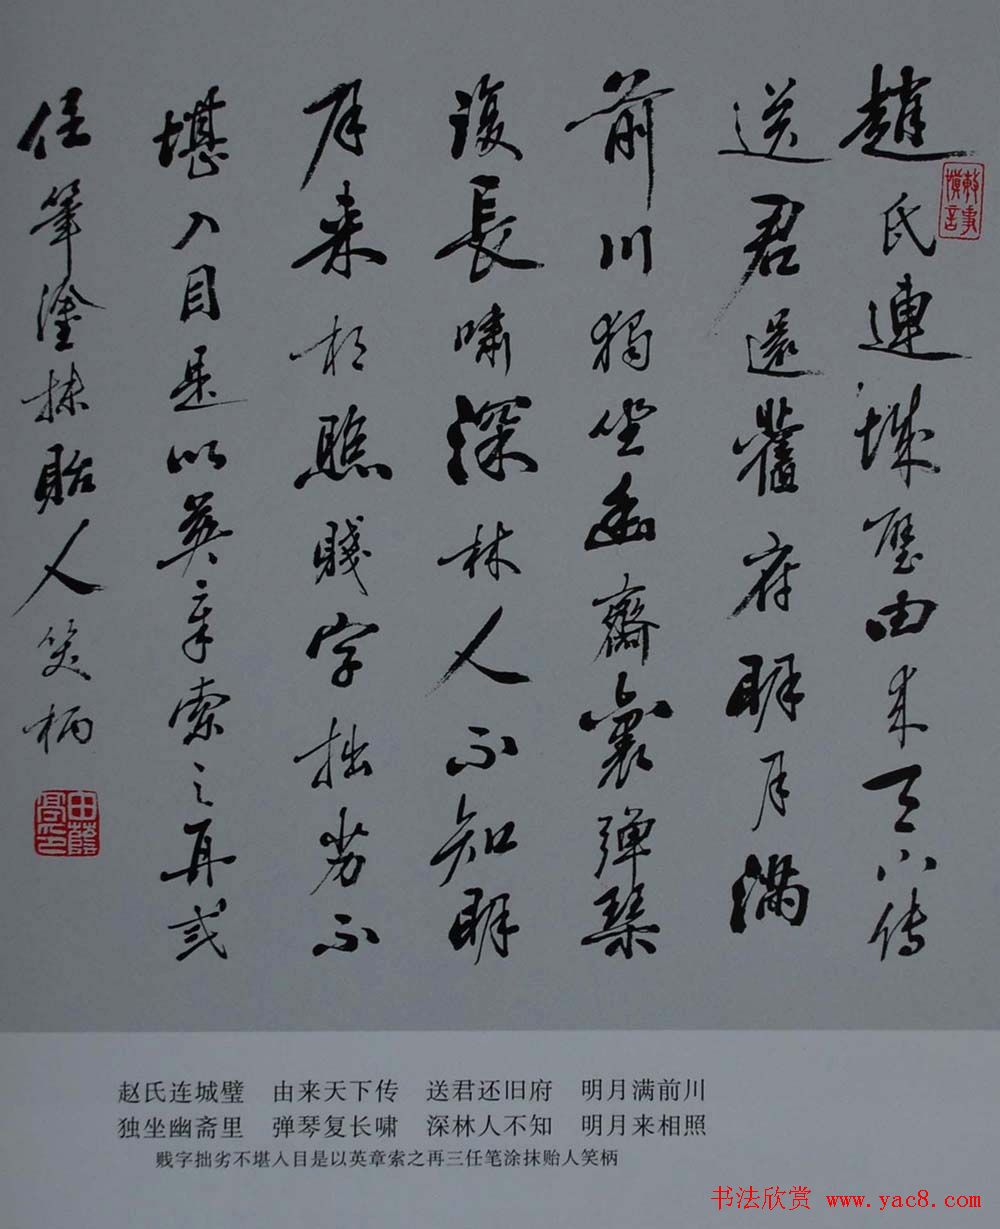 趙氏連城璧由来天下传
送君還舊府明月滿
前川獨坐幽齋裏彈琴
復長嘯深林人不知明
月来相照賤字拙劣不
堪入目是以英章索之再弎
任筆塗抹貽人笑柄
敏事慎言
赵氏连城璧 由来天下传 送君还旧府 明月满前川
独坐幽斋里 弹琴复长啸 深林人不知 明月来相照
贱字拙劣不堪入目是以英章索之再三任笔涂抹贻人笑柄
书法欣赏 www.yac8.com